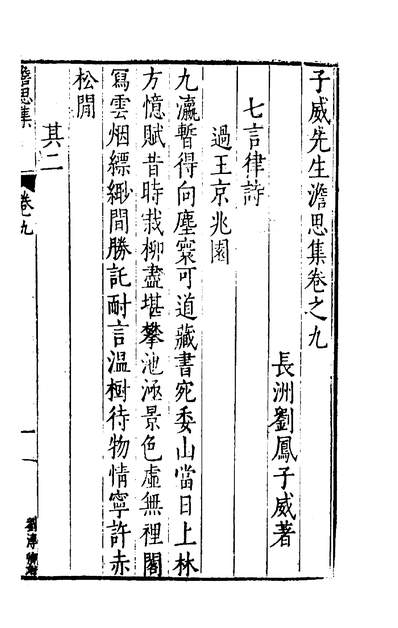 子威先生澹思集卷之九
長洲劉鳳子威著
七言律詩
過王京兆園
九瀛暫得向塵寰可道藏書宛委山當日上林
方憶賦昔時栽柳盡堪攀池涵景色虛無裡閣
寫雲烟縹緲間勝託耐言溫樹待物情寧許赤
松閒
其二
澹思集
卷九
一